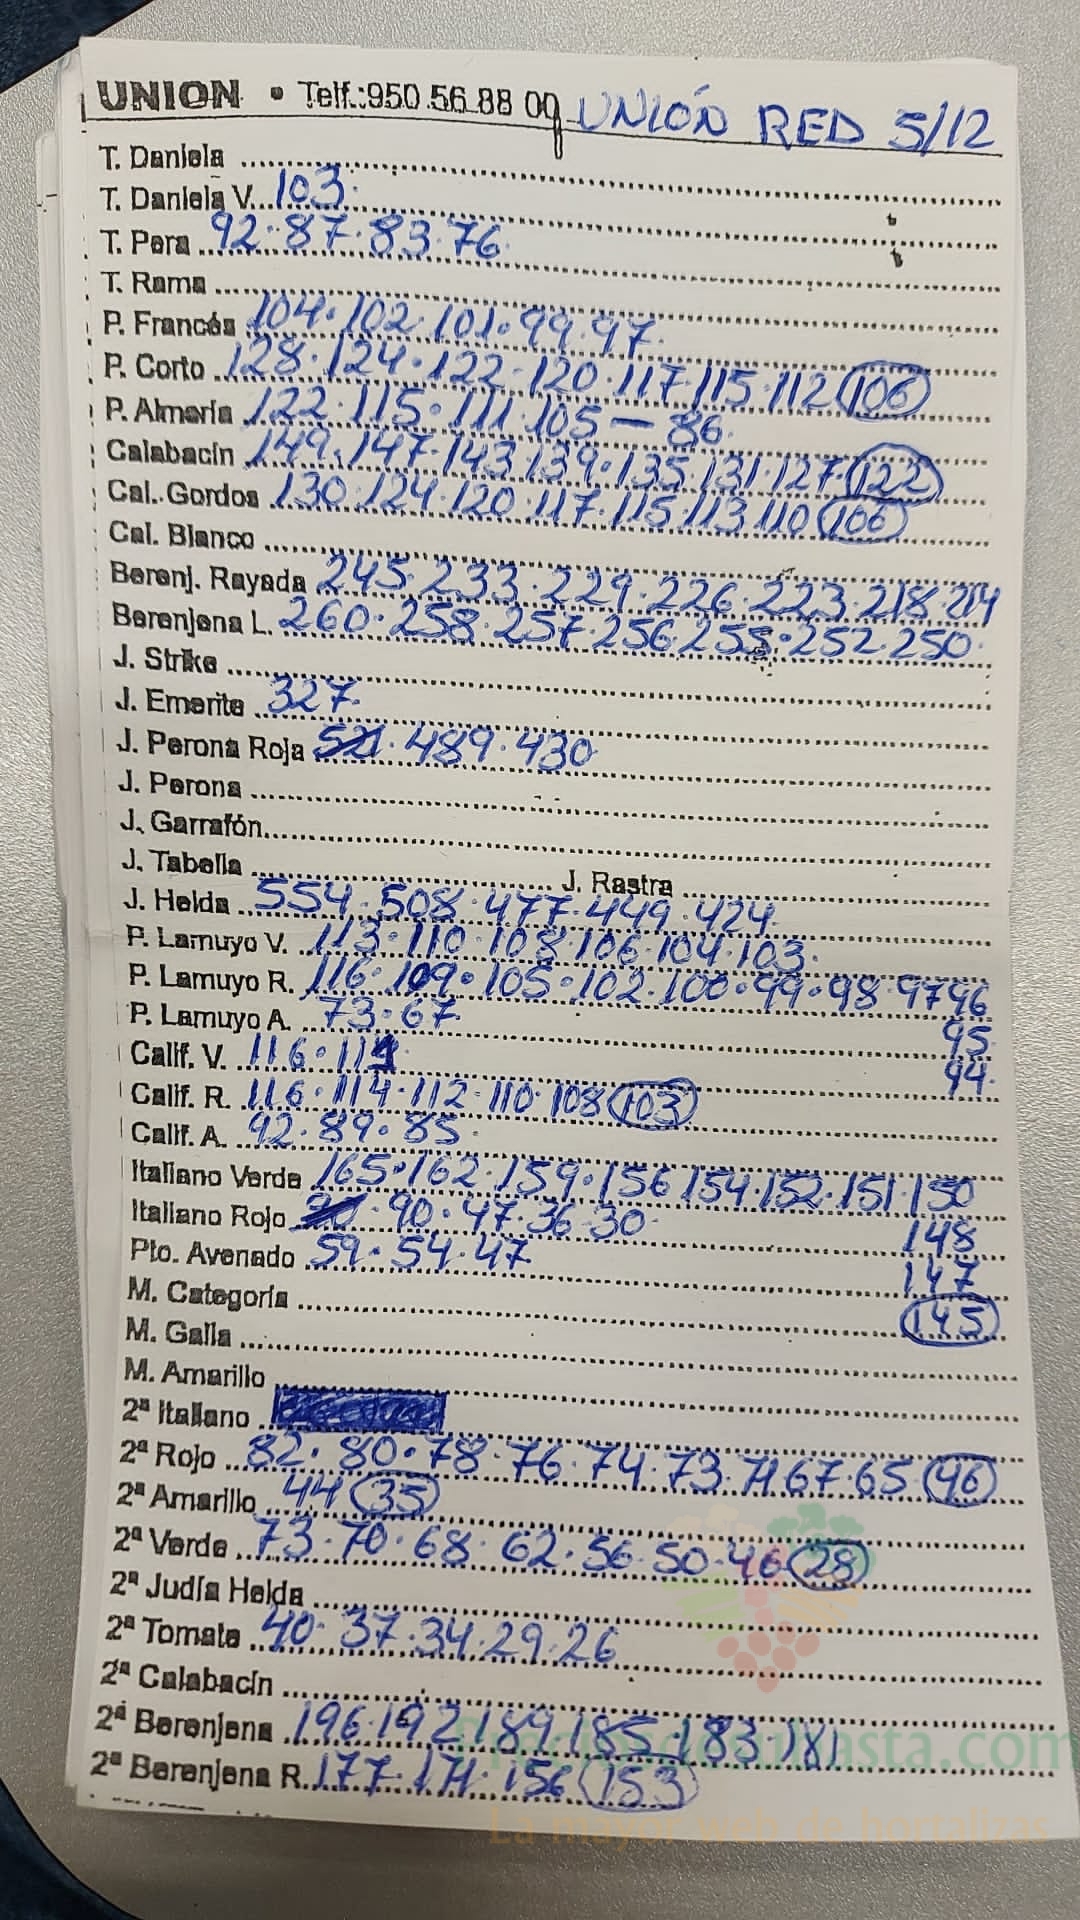 UNION • Telf.:950 56 88 00 UNIÓN RED 5/12
T. Daniela
T. Daniela V. 103.
T. Pera 92. 87. 83. 76.
T. Rama
P. Francés 104. 102. 101. 99. 97.
P. Corto 128. 124. 122. 120. 117. 115. 112 106
P. Almería 122. 115. 111. 105 — 86.
Calabacín 149. 147. 143. 139. 135. 131. 127. 122
Cal. Gordos 130. 124. 120. 117. 115. 113. 110 106
Cal. Blanco
Berenj. Rayada 245. 233. 229. 226. 223. 218. 214
Berenjena L. 260. 258. 257. 256. 255. 252. 250.
J. Strike
J. Emerite 327.
J. Perona Roja 521. 489. 430
J. Perona
J. Garrafón
J. Tabella J. Rastra
J. Helda 554. 508. 477. 449. 424
P. Lamuyo V. 113. 110. 108. 106. 104. 103.
P. Lamuyo R. 116. 109. 105. 102. 100. 99. 98. 97 96
P. Lamuyo A. 73. 67 95.
Calif. V. 116. 94.
Calif. R. 116. 114. 112. 110. 108 103
Calif. A. 92. 89. 85.
Italiano Verde 165. 162. 159. 156 154. 152. 151. 150
Italiano Rojo 90. 47. 36. 30. 148
Pto. Avenado 59. 54. 47 147
M. Categoría 145
M. Galia
M. Amarillo
2ª Italiano
2ª Rojo 82. 80. 78. 76. 74. 73. 71. 67. 65 46
2ª Amarillo 44 35
2ª Verde 73. 70. 68. 62. 56. 50. 46 28
2ª Judía Helda
2ª Tomate 40. 37. 34. 29. 26
2ª Calabacín
2ª Berenjena 196. 192. 189. 185. 183. 181
2ª Berenjena R. 177. 171. 156 153
La mayor web de hortalizas